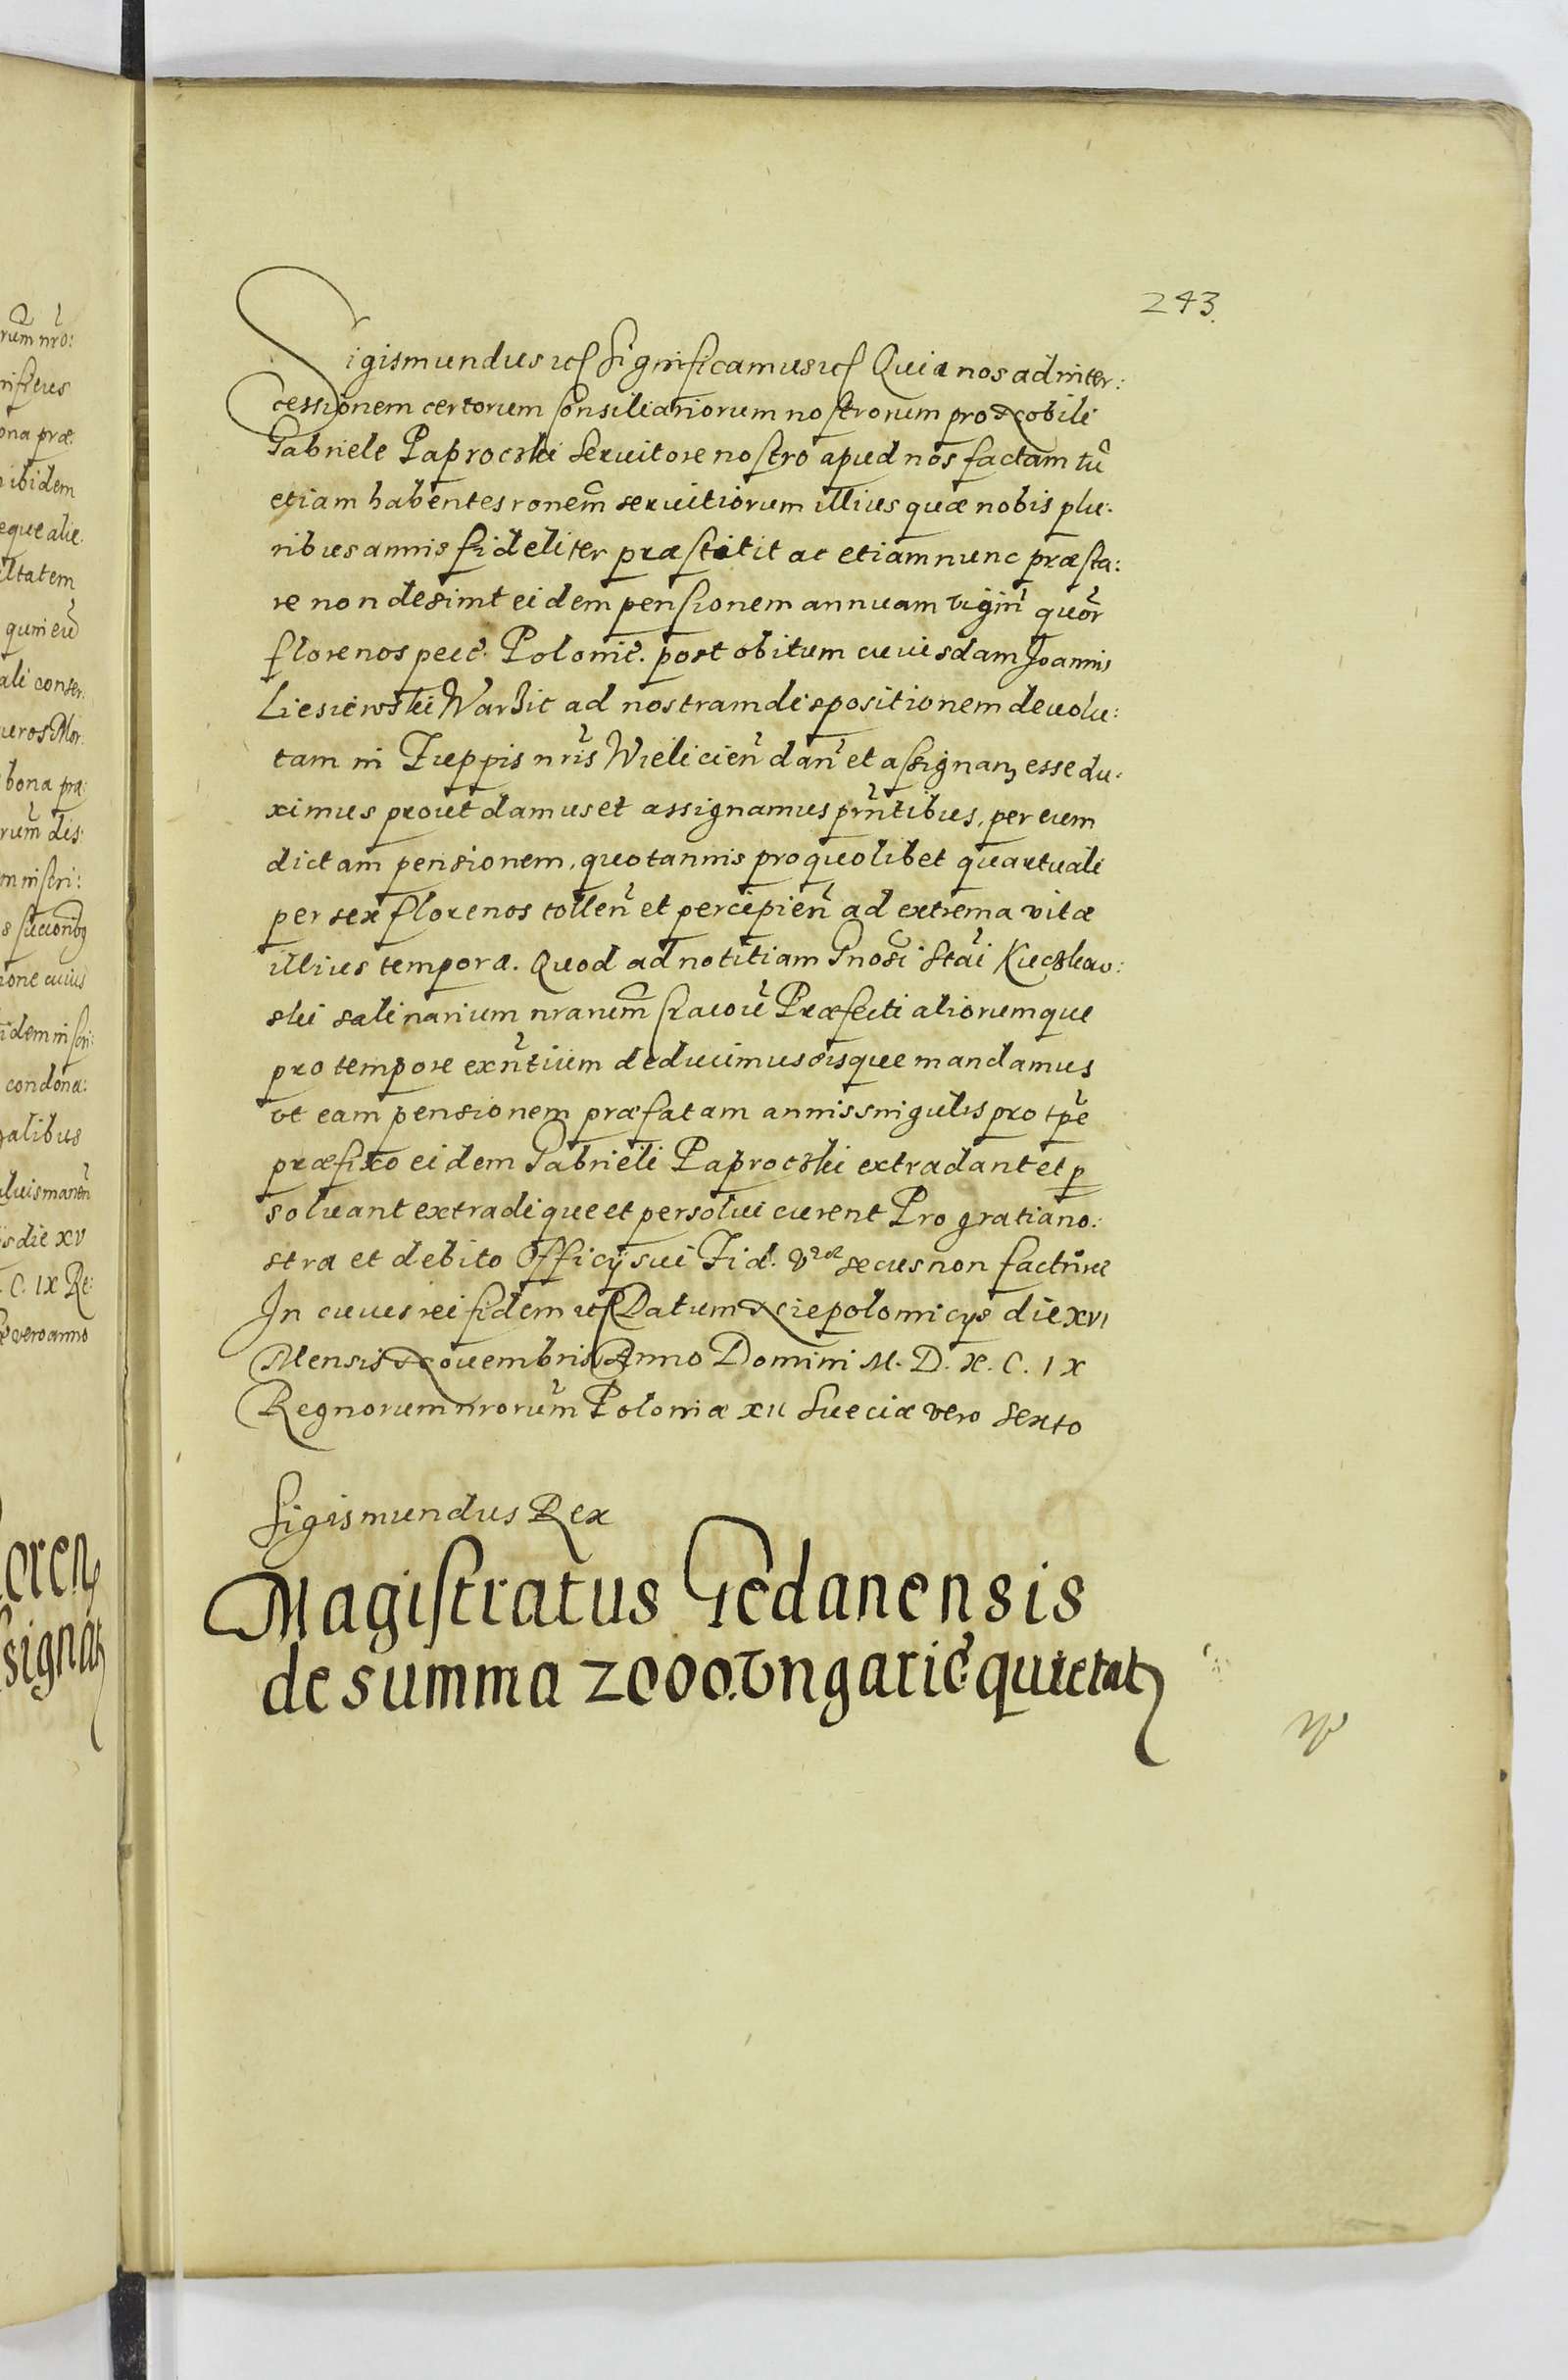 243.
Sigismundus etc Significamus etc Quia nos ad inter:
cessionem certorum Consiliariorum nostrorum pro Nobili
Gabriele Paproczki Seruitore nostro apud nos factam tũ
etiam habentes ronem̃ seruitiorum illius quæ nobis plu:
ribus annis fideliter præstitit ac etiam nunc præsta:
re non desinit eidem pensionem annuam vigin̄ quor̃
florenos pec̃. Polonic̃. post obitum cuiusdam Joannis
Liesiewski Warzic ad nostram dispositionem deuolu:
tam in Zuppis nr̃is Wielicieñ dañ et assignanꝫ esse du:
ximus prout damus et assignamus pr̃ntibus, per eum
dictam pensionem, quotannis pro quolibet quartuali
per sex florenos tolleñ et percipieñ ad extrema vitæ
illius tempora. Quod ad notitiam Gnosĩ Stãi Kuczkow:
ski salinarium nrarum̃ Cracouĩ Præfecti aliorumque
pro tempore exñtium deducimus eisque mandamus
vt eam pensionem præfatam annis singulis pro tp̃e
præfixo eidem Gabrieli Paproczki extradant et p
soluant extradique et persolui curent Pro gratia no:
stra et debito Officij sui Fid. Vræ secus non facturæ
In cuius rei fidem etc Datum Niepolomicys die XVI
Mensis Nouembris Anno Domini M. D. X. C. IX
Regnorum nrorum̃ Poloniæ XII Sueciæ vero Sexto
Sigismundus Rex
Magistratus Gedanensis
de summa 2000. Vngaric̃ quietatꝫ